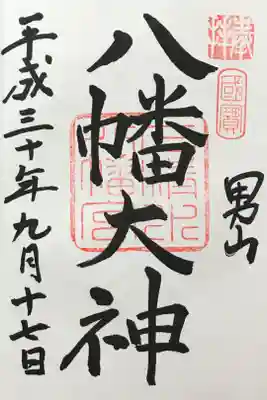 奉拝
國寶
男山
八幡大神
石清水八幡宮
平成三十年九月十七日